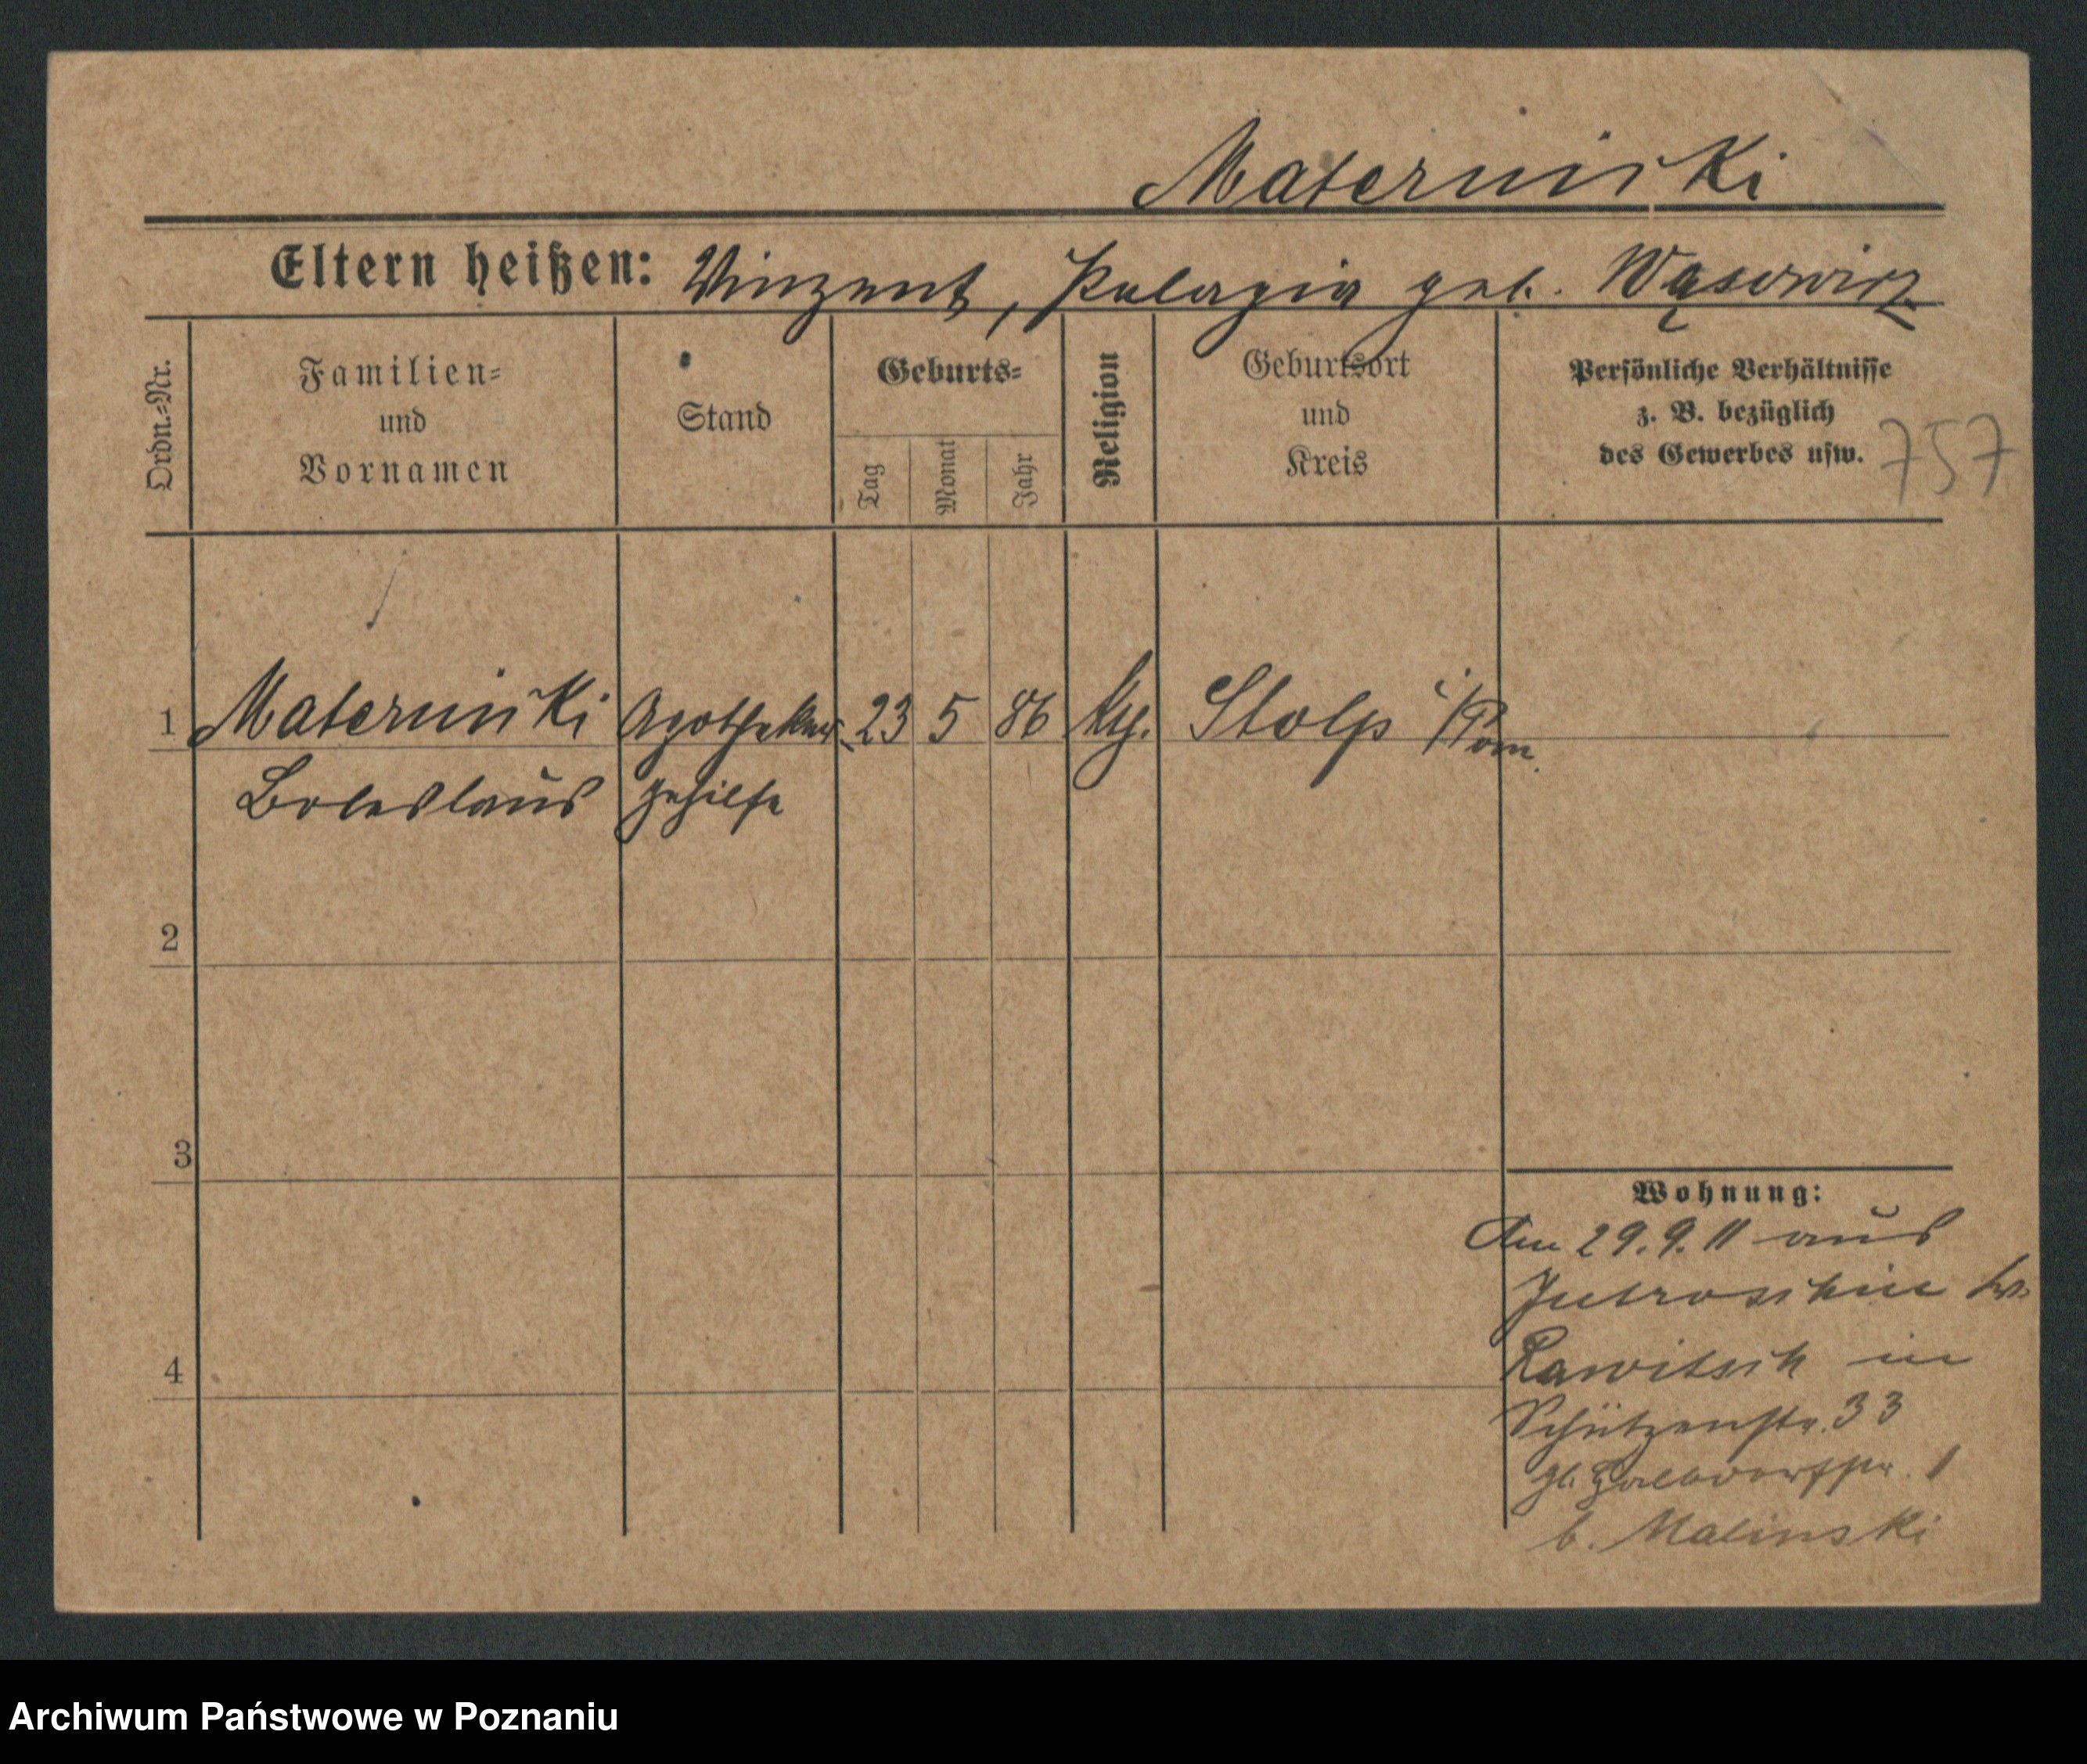 Materniski
Eltern heißen: Vinzent, Pelagia geb. Wąsowicz
Ordn.-Nr.
Familien-
und
Vornamen
Stand
Geburts-
Tag
Monat
Jahr
Religion
Geburtsort
und
Kreis
Persönliche Verhältnisse
z. B. bezüglich
des Gewerbes usw.
757
1 Materniski Apotheker 23 5 86 kath. Stolp i/Pom.
Boleslaus gehilfe
2
3
4
Wohnung:
Am 29.9.11 aus
Jutroschin Kr.
Rawitsch in
Schützenstr. 33
Halbdorfstr. 1
b. Malinski
Archiwum Państwowe w Poznaniu